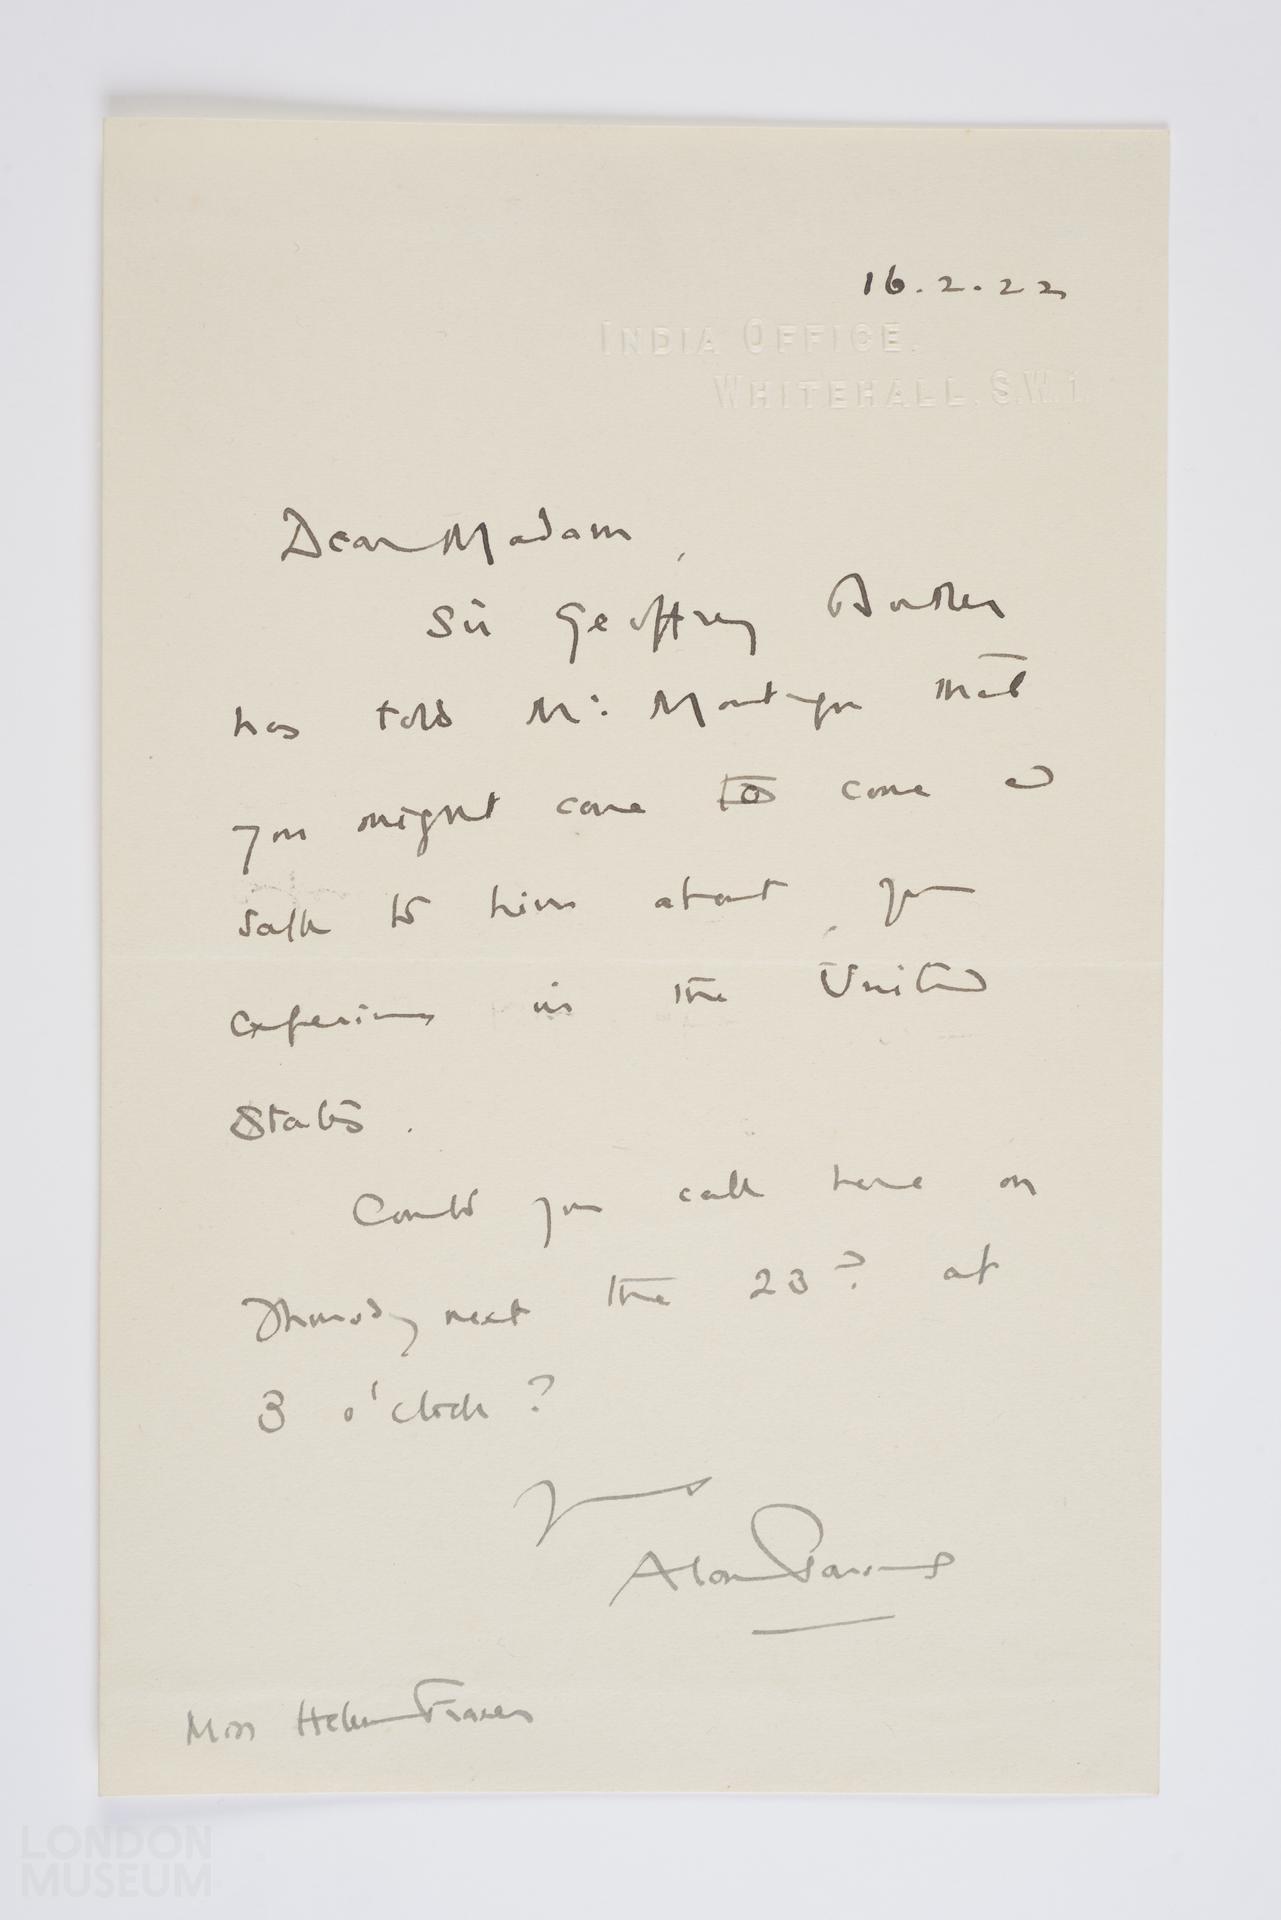 16.2.22
INDIA OFFICE.
WHITEHALL. S.W.1.
Dear Madam,
Sir Geoffrey Butler
has told Mr. Montagu that
you might care to come &
talk to him about your
experiences in the United
States.
Could you call here on
Thursday next the 23? at
3 o'clock?
Yours
Alan Parsons
Miss Helen Fraser
LONDON
MUSEUM